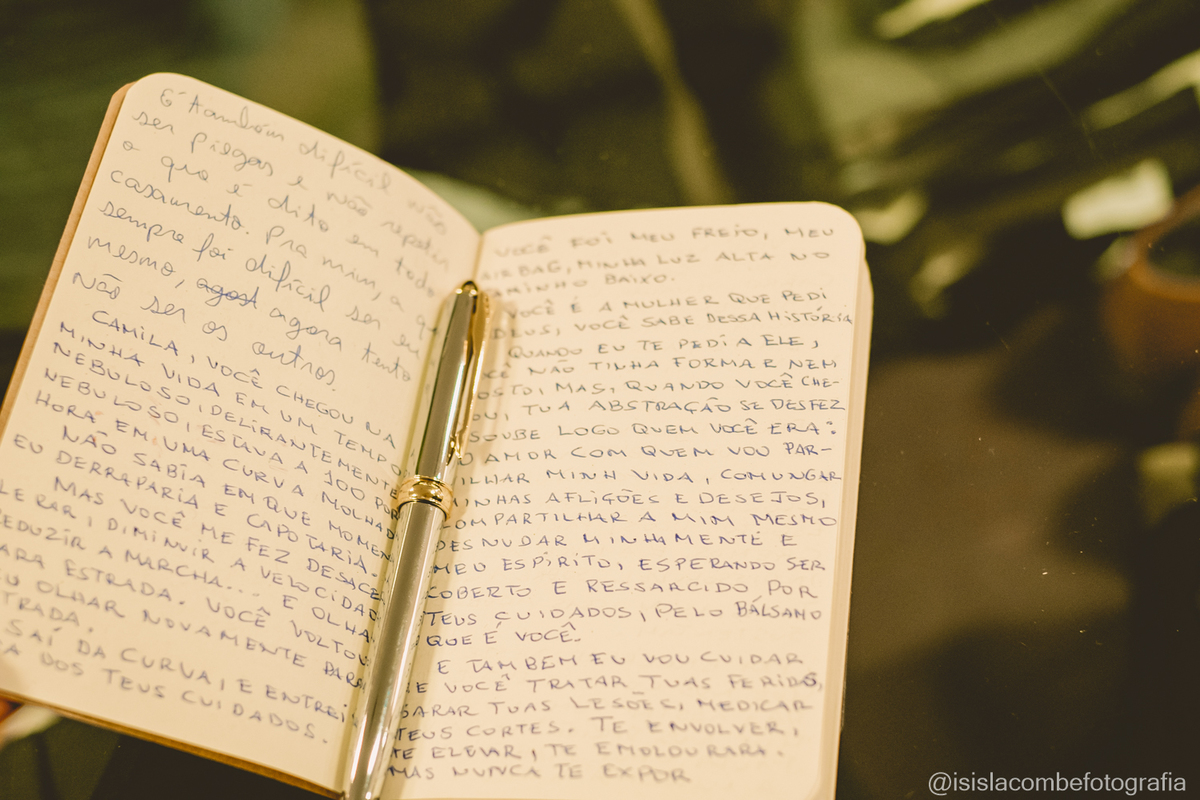 É também difícil não
ser piegas e não repetir
o que é dito em todo
casamento. Pra mim, a
sempre foi difícil ser eu
mesmo, agora tento
não ser os outros.
CAMILA, VOCÊ CHEGOU NA
MINHA VIDA EM UM TEMPO
NEBULOSO, DELIRANTEMENTE
NEBULOSO, ESTAVA A 100 POR
HORA EM UMA CURVA MOLHADA
NÃO SABIA EM QUE MOMEN
EU DERRAPARIA E CAPOTARIA.
MAS VOCÊ ME FEZ DESACE
LERAR, DIMINUIR A VELOCIDAD
REDUZIR A MARCHA... E OLHA
ARA ESTRADA. VOCÊ VOLTOU
U OLHAR NOVAMENTE PARA
TRADA.
SAÍ DA CURVA, E ENTREI
A DOS TEUS CUIDADOS.
VOCÊ FOI MEU FREIO, MEU
AIRBAG, MINHA LUZ ALTA NO
AMINHO BAIXO.
VOCÊ É A MULHER QUE PEDI
DEUS, VOCÊ SABE DESSA HISTÓRIA
QUANDO EU TE PEDI A ELE,
CÊ NÃO TINHA FORMAR NEM
OSTO, MAS, QUANDO VOCÊ CHE-
OU, TUA ABSTRAÇÃO SE DESFEZ
SOUBE LOGO QUEM VOCÊ ERA:
O AMOR COM QUEM VOU PAR-
TILHAR MINH VIDA, COMUNGAR
MINHAS AFLIÇÕES E DESEJOS,
COMPARTILHAR A MIM MESMO
DESNUDAR MINHA MENTE E
MEU ESPÍRITO, ESPERANDO SER
COBERTO E RESSARCIDO POR
TEUS CUIDADOS, PELO BÁLSAMO
QUE É VOCÊ.
E TAMBÉM EU VOU CUIDAR
DE VOCÊ TRATAR TUAS FERIDAS,
SARAR TUAS LESÕES, MEDICAR
TEUS CORTES. TE ENVOLVER,
TE ELEVAR, TE EMOLOURARA.
MAS NUNCA TE EXPOR
@isislacombefotografia